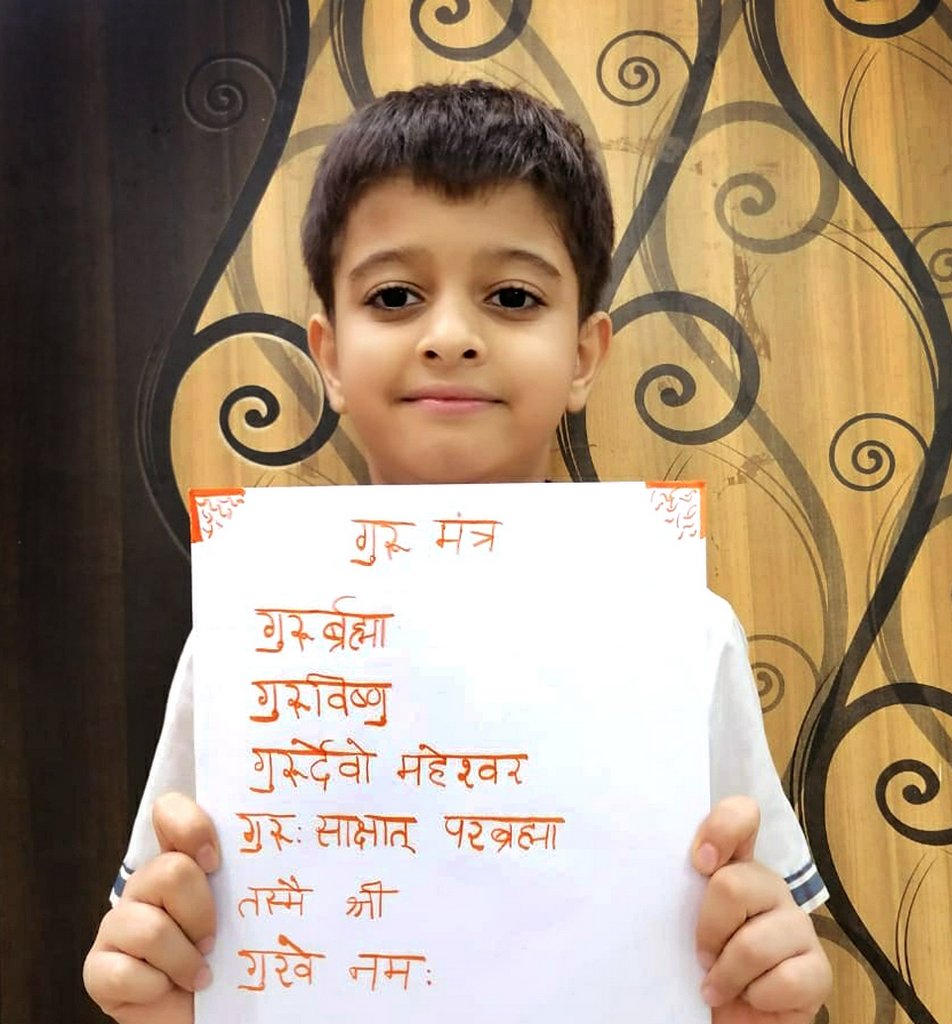 गुरू मंत्र
गुरूर्ब्रह्मा
गुरूविष्णु
गुरूर्देवो महेश्वर
गुरू: साक्षात् परब्रह्मा
तस्मै श्री
गुरवे नम: